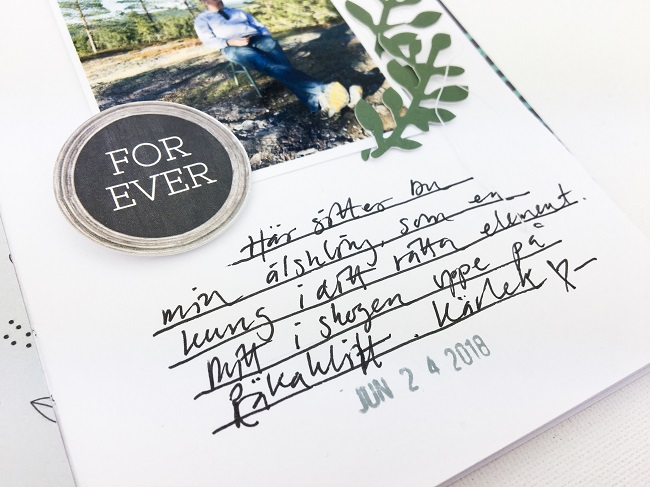 FOR
EVER
Här sitter du
min älskling, som en
kung i ditt rätta element.
Mitt i skogen uppe på
Råkaklitt. Kärlek
JUN 24 2018